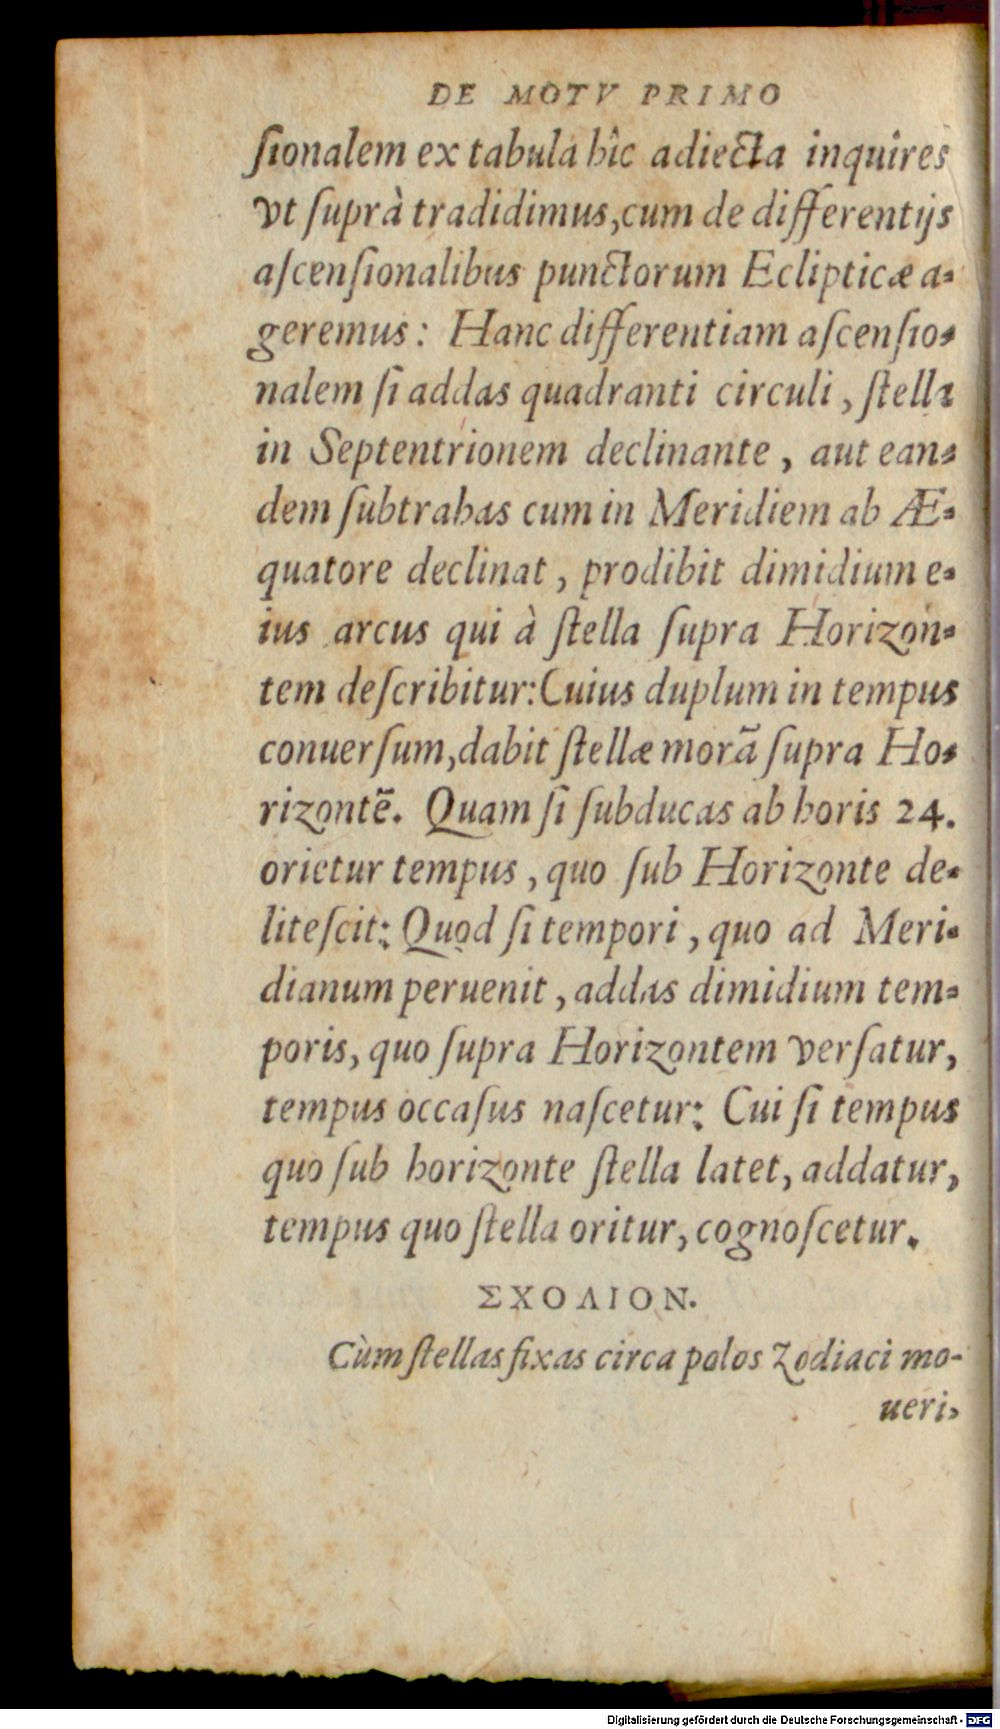 DE MOTV PRIMO
ſionalem ex tabula hîc adiecta inquires
vt ſuprà tradidimus,cum de differentijs
aſcenſionalibus punctorum Eclipticæ a-
geremus: Hanc differentiam aſcenſio-
nalem ſi addas quadranti circuli, ſtella
in Septentrionem declinante, aut ean-
dem ſubtrahas cum in Meridiem ab Æ-
quatore declinat, prodibit dimidium e-
ius arcus qui à ſtella ſupra Horizon-
tem deſcribitur:Cuius duplum in tempus
conuerſum,dabit ſtellæ morã ſupra Ho-
rizontẽ. Quam ſi ſubducas ab horis 24.
orietur tempus, quo ſub Horizonte de-
liteſcit: Quod ſi tempori, quo ad Meri-
dianum peruenit, addas dimidium tem-
poris, quo ſupra Horizontem verſatur,
tempus occaſus naſcetur: Cui ſi tempus
quo ſub horizonte ſtella latet, addatur,
tempus quo ſtella oritur, cognoſcetur.
ΣΧΟΛΙΟΝ.
Cùm ſtellas fixas circa polos Zodiaci mo-
ueri,
Digitalisierung gefördert durch die Deutsche Forschungsgemeinschaft - DFG